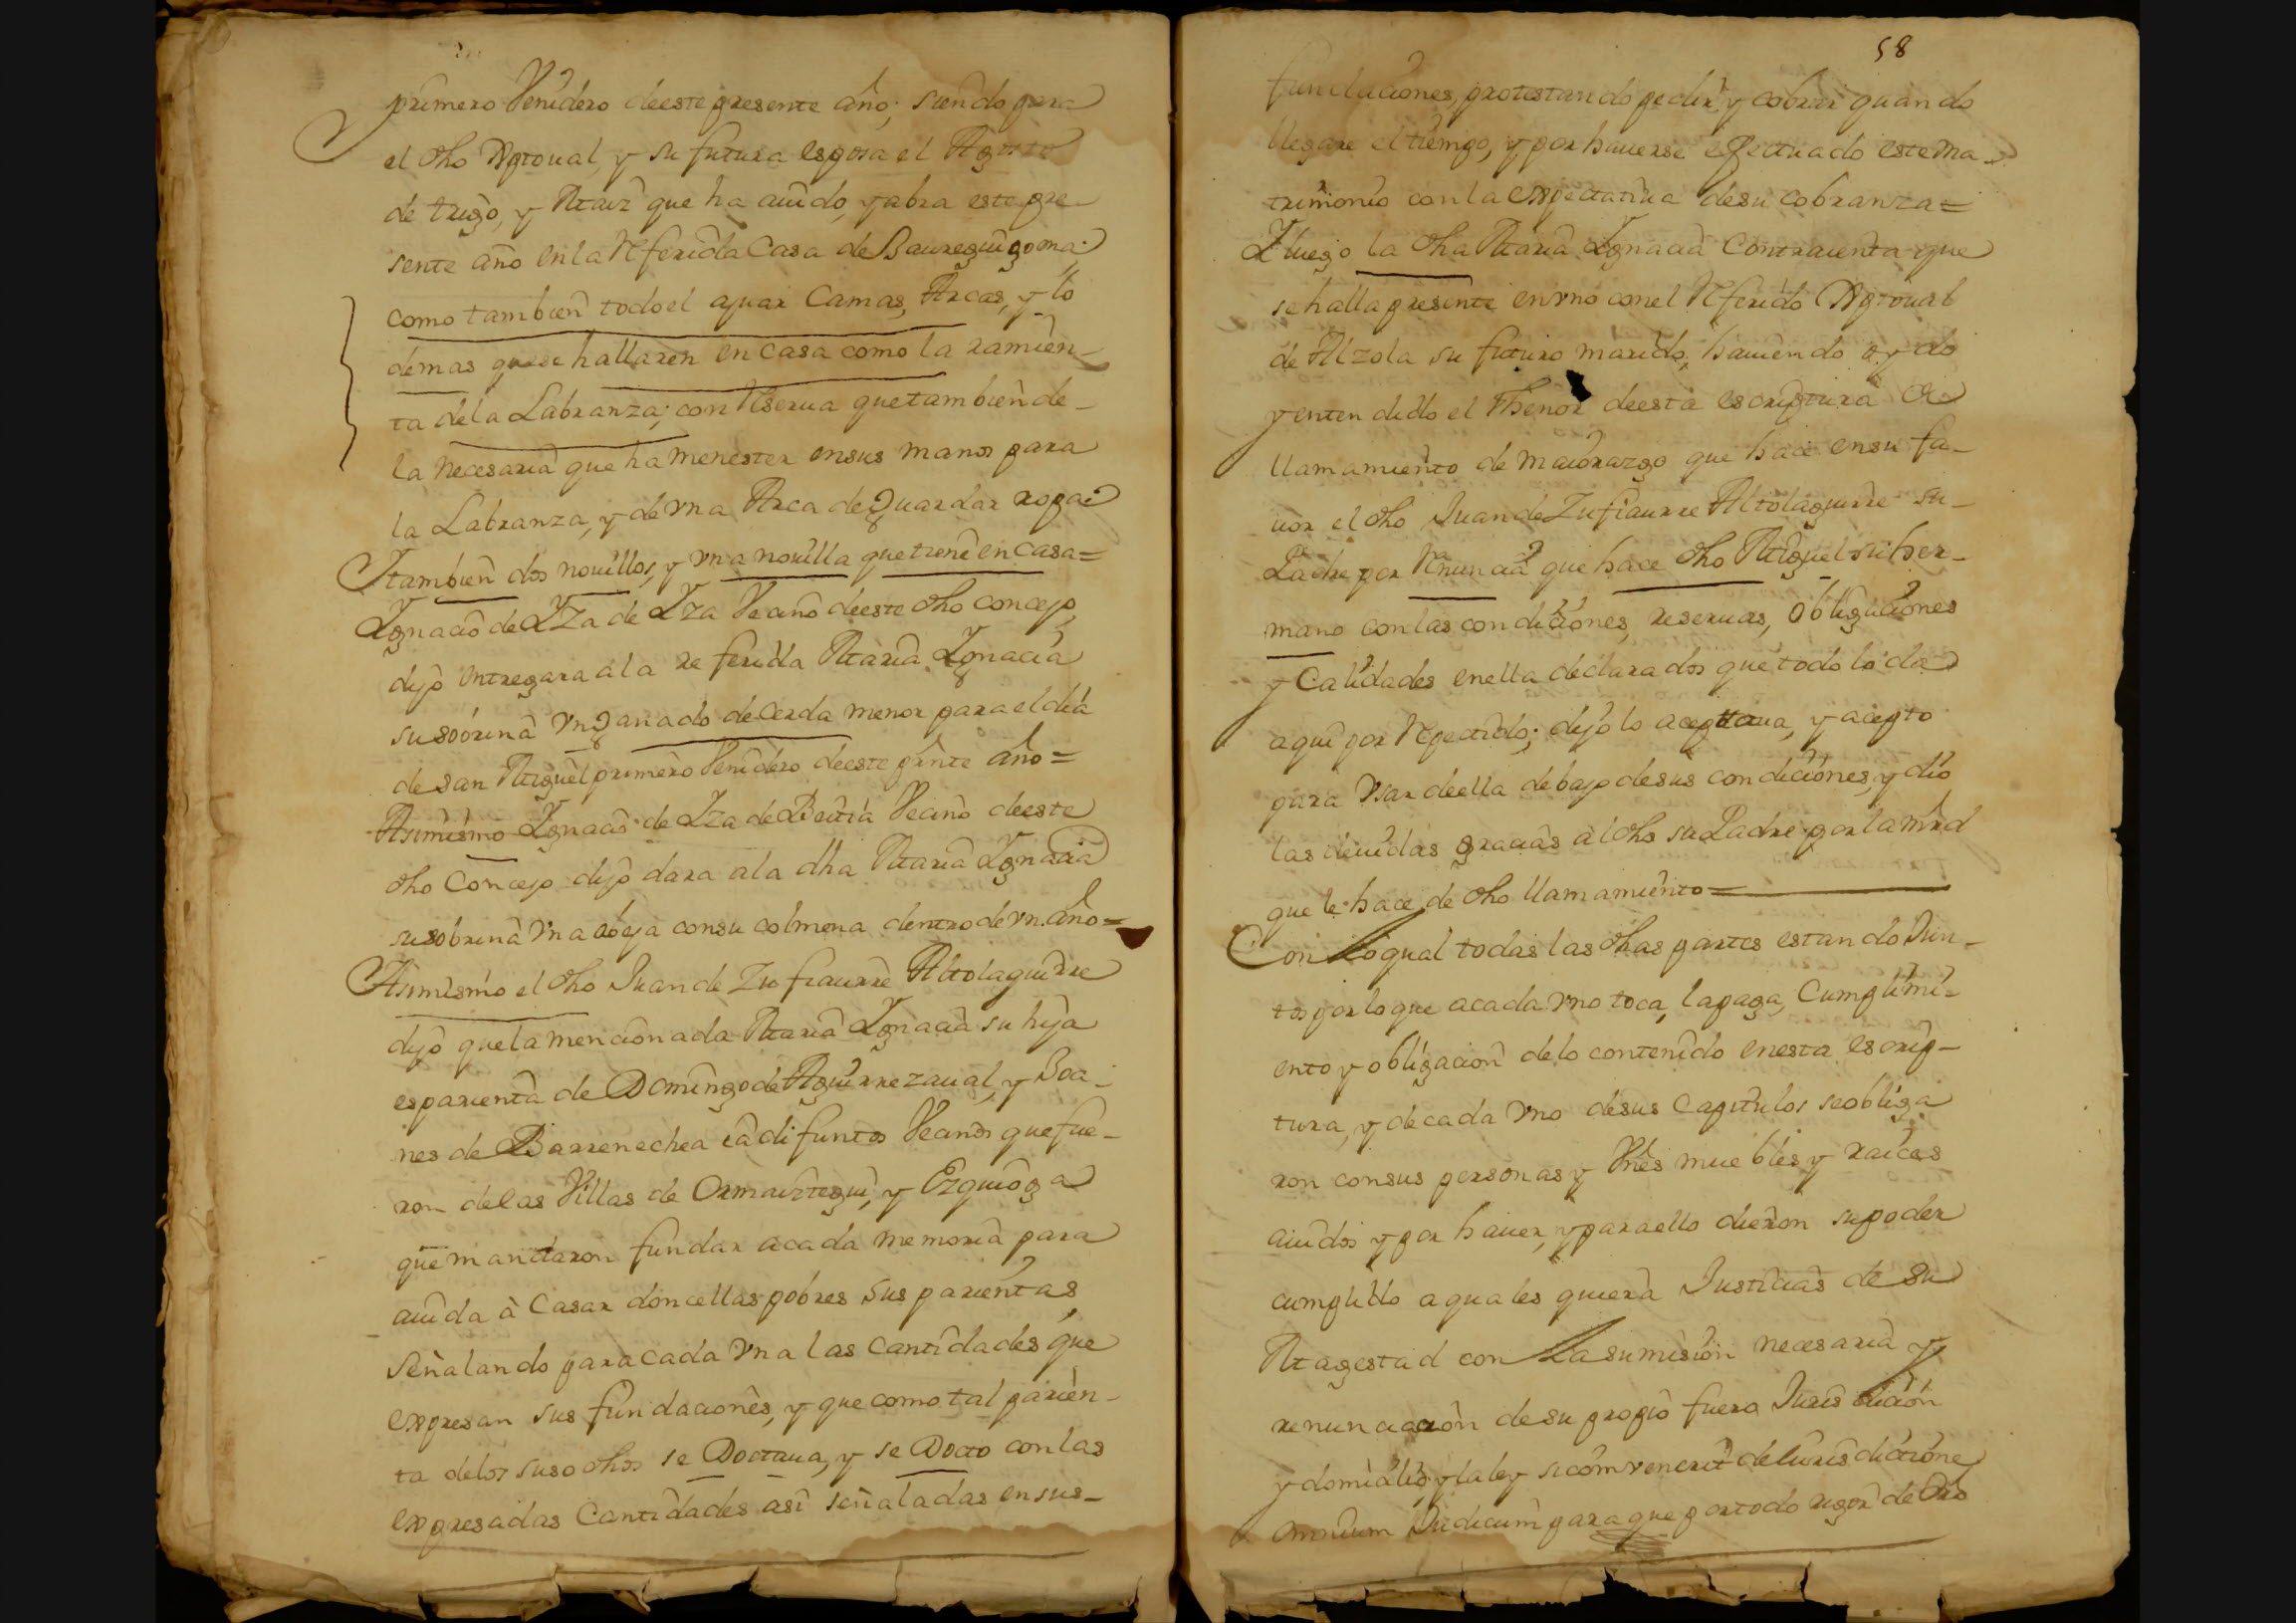 primero Venidero deeste presente año; siendo para
el dho Xptoual, y su futura esposa el Agosto
de trigo, y Maiz que ha auido, y abra este pre-
sente año en la Referida Casa de Baureguigoena.
como tambien todo el ajuar Camas, Arcas, y lo
demas que se hallaren en casa como la ramien-
ta dela Labranza; con Reserua que tambien de-
la necesaria que ha menester en sus manos para
la Labranza, y de vna Arca de guardar ropa
Itambien dos nouillos, y vna nouilla que tiene en casa=
Ignacio de Yza de Yza Vecino deeste dho concejo,
dijo entregara ala referida Maria Ignacia
su sobrina vn ganado de Cerda menor para el dia
de san Miguel primero Venidero deeste pnte año=
Asimismo Ignacio de Iza de Beitia Vecino deeste
dho Concejo dijo dara ala dha Maria Ignacia
su sobrina vna abeja con su colmena dentro de vn año=
Asimismo el dho Juan de Zufiaurre Altolaguirre
dijo que la mencionada Maria Ignacia su hija
es parienta de Domingo de Aguirrezaual, y Joa-
nes de Barrenechea ia difuntos Vecinos que fue-
ron delas Villas de Ormaiztegui, y Ezquioga
que mandaron fundar acada memoria para
aiuda à Casar doncellas pobres sus parientas
señalando para cada vna las Cantidades que
expresan sus fundaciones, y que como tal parien-
ta delos suso dhos se Doctaua, y se Docto con las
expresadas Cantidades asi señaladas en sus-
58
fundaciones, protestando pedir y cobrar quando
llegare el tiempo, y por hauerse efectuado este ma-
trimonio con la expectatiua de su cobranza=
Y luego la dha Maria Ignacia Contraienta que
se halla presente en vno con el Referido Xptoual
de Alzola su futuro marido, hauiendo oydo
y entendido el Thenor deesta escriptura
llamamiento de maiorazgo que hace en su fa-
uor el dho Juan de Zufiaurre Altolaguirre su-
Padre por Renuncia que hace dho Miguel su her-
mano con las condiciones, reseruas, obligaciones
y Calidades en ella declarados que todo lo da
aqui por Repetido; dijo lo aceptaua, y acepto
para vsar deella debajo de sus condiciones, y dio
las deuidas gracias al dho su Padre por la mrd
que le hace de dho llamamiento=
Con lo qual todas las dhas partes estando Jun-
tos por lo que acada vno toca, la paga, Cumplimi-
ento y obligacion delo contenido en esta escrip-
tura, y de cada vno de sus Capitulos se obliga
ron con sus personas y Vnes muebles y raices
auidos y por hauer, y para ello dieron su poder
cumplido a quales quiera Justicias de su
Magestad con la sumision necesaria y
renunciacion de su propio fuero Jurisdicion
y domicilio, y la ley si combenerit de Iurisdictione
omnium Judicum para que por todo rigor de Dro